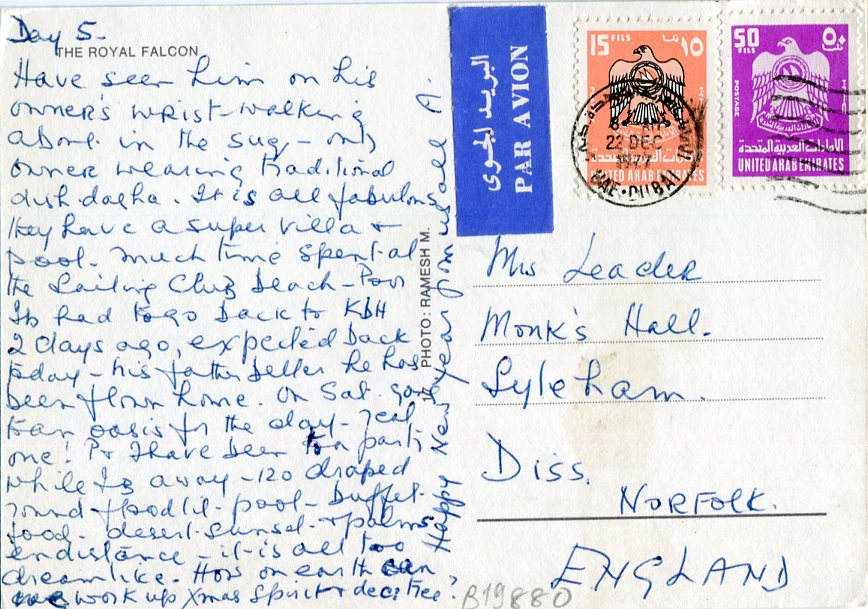 Day 5.
THE ROYAL FALCON
Have seen him on his
owner's wrist-walking
about in the suq - only
owner wearing traditional
dishdasha. It is all fabulous
they have a super villa +
pool. Much time spent at
the Sailing Club beach - Poor
had to go back to
2 days ago, expected back
today - his father better he has
been flown home. On Sat. gone
to an oasis for the day - real
one! P + I have been to a party
while away - 120 draped
round floodlit - pool - buffet
food - desert - sunset + palms
in distance - it is all too
dreamlike. How on earth can
we work up Xmas spirit + dec: tree?
Happy New year from us all
17 PHOTO: RAMESH M.
البريد الجوى
PAR AVION
15 FILS ١٥ فلس
الامارات العربية المتحدة
UNITED ARAB EMIRATES
22 DEC
1977
UAE • DUBAI
50 FILS ٥٠
POSTAGE
الامارات العربية المتحدة
UNITED ARAB EMIRATES
Mrs Leader
Monk's Hall.
Syleham.
Diss.
NORFOLK.
ENGLAND
B19880